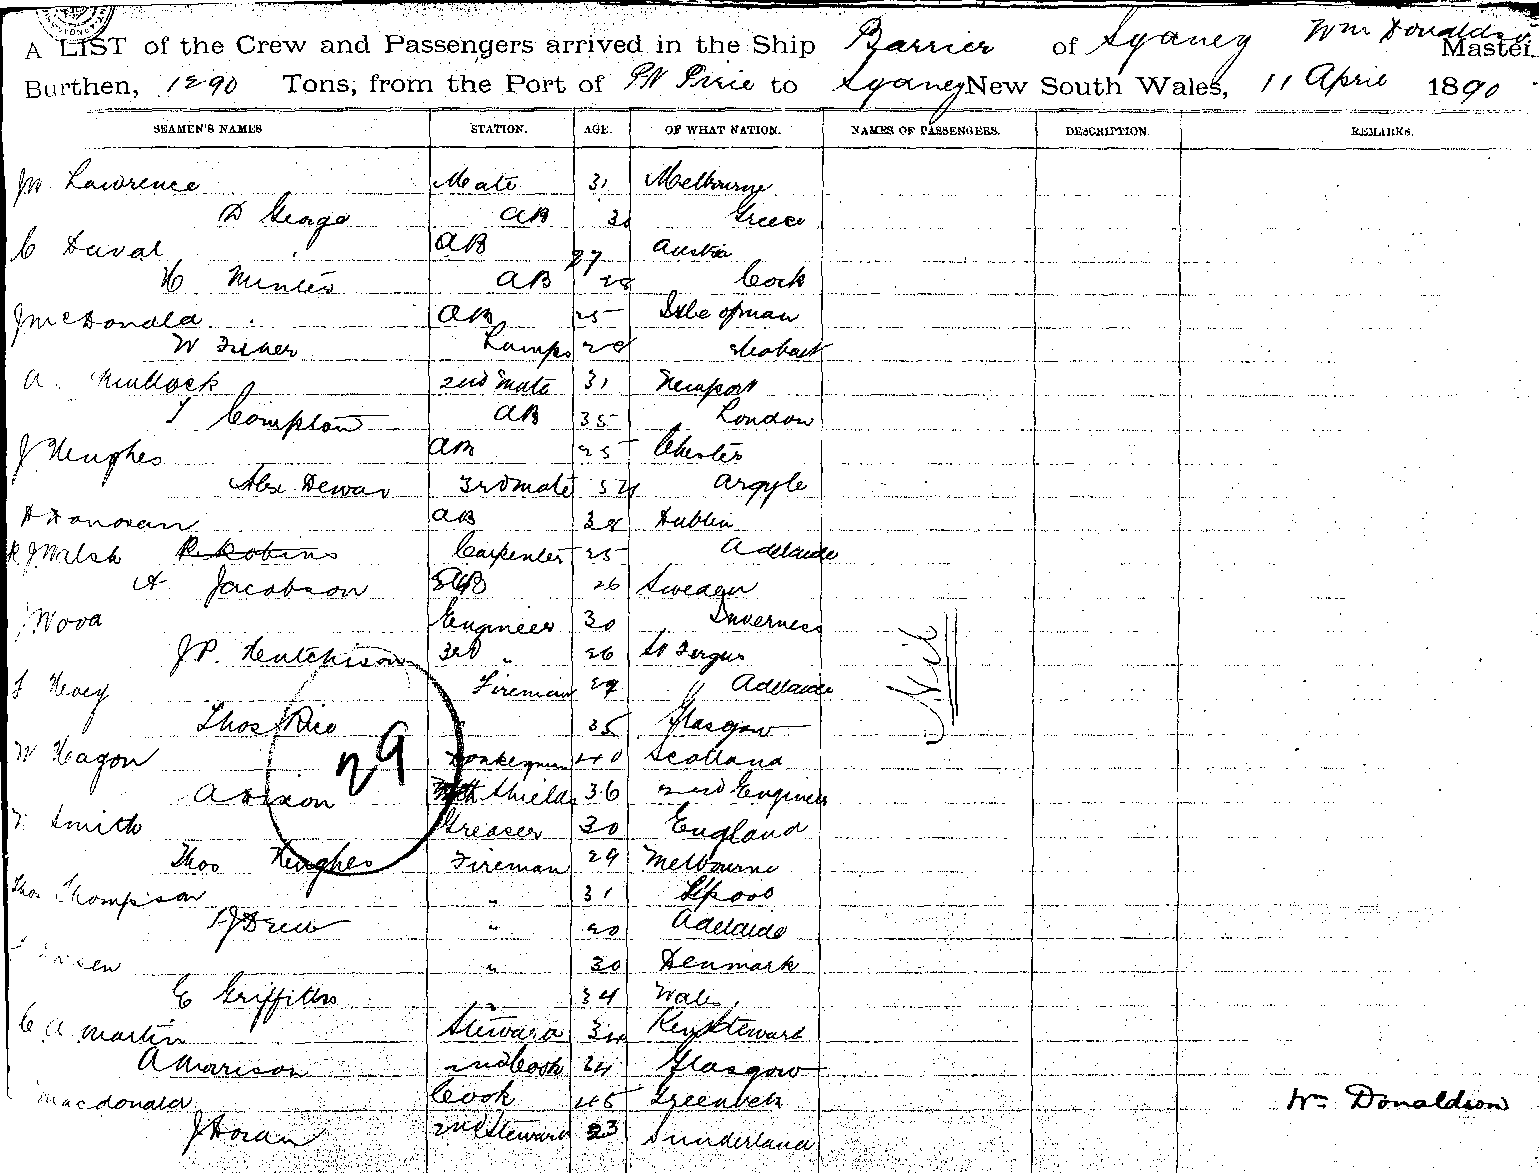 A LIST of the Crew and Passengers arrived in the Ship Barrier of Sydney Wm Donaldson Master
Burthen, 1290 Tons, from the Port of Pt Pirie to Sydney New South Wales, 11 April 1890
SEAMEN'S NAMES STATION. AGE. OF WHAT NATION. NAMES OF PASSENGERS. DESCRIPTION. REMARKS.
Lawrence Mate 31 Melbourne
D George AB Greece
C Duval AB 27 Austria
H AB 28 Cork
J McDonald AB 25 Isle of man
W Lamps 28 Hobart
A. 2nd Mate 31 Newport
Compton AB 35 London
J Hughes AB 25 Chester
Alex Dewar 3rd mate Argyle
D Donovan AB 38 Dublin
R J Welsh Carpenter 25 Adelaide
A Jacobson AB 26 Sweden
Engineer 30 Inverness
J P. Hutchison 3rd " 26 St Fergus
Fireman Adelaide
Thos Rice " 35 Glasgow
W Hagon Donkeyman 40 Scotland
A Dixon Nth Shields 36 2nd Engineer
Smith Greaser 30 England
Thos Hughes Fireman 29 Melbourne
Thos Thompson " 31 L'pool
J Drew " 20 Adelaide
" 30 Denmark
E Griffiths " 34 Wales
C A Martin Steward Steward
A Morrison 2nd Cook 24 Glasgow
Macdonald Cook 45 Greenock
J Horan 2nd Steward 23 Sunderland
Nil
29
Wm Donaldson